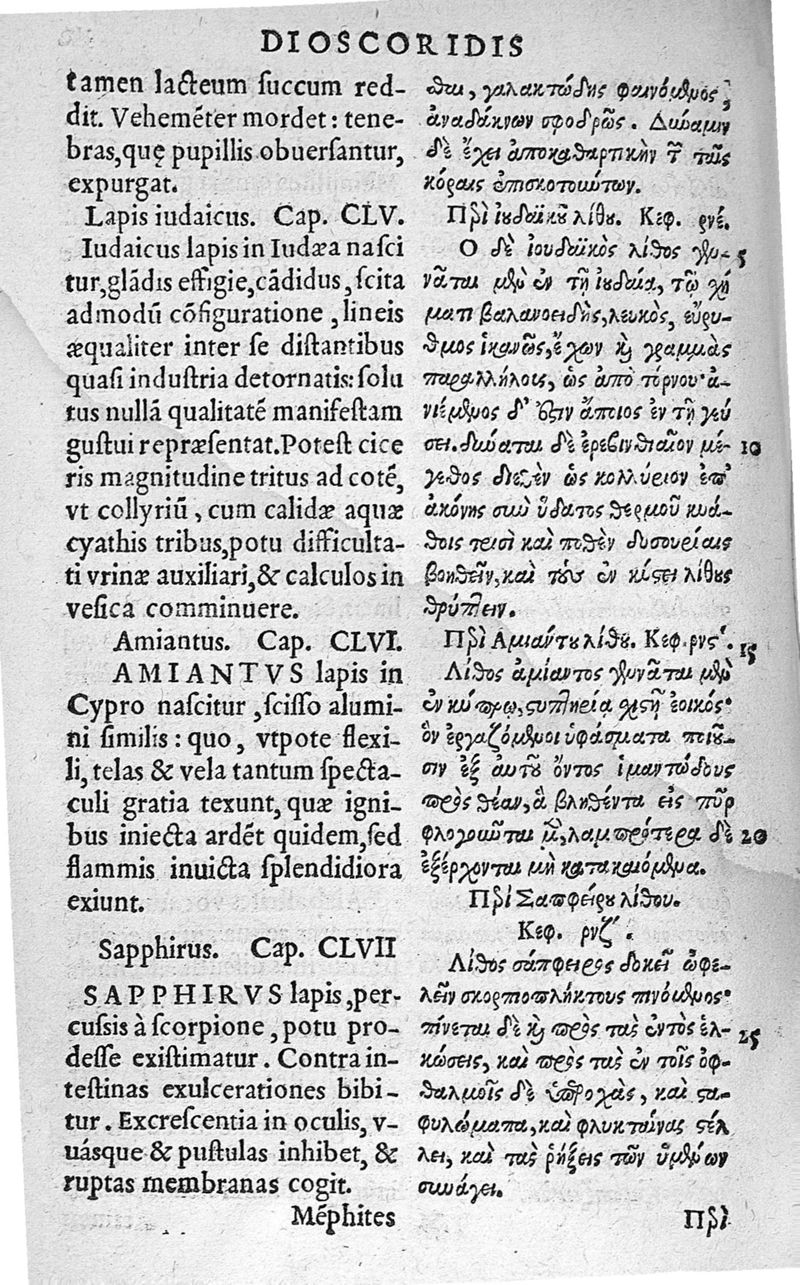 DIOSCORIDIS
tamen lacteum succum red-
dit. Vehemēter mordet: tene-
bras, quę pupillis obuersantur,
expurgat.
Lapis iudaicus. Cap. CLV.
Iudaicus lapis in Iudæa nasci
tur, glādis effigie, cādidus, scita
admodū cōfiguratione, lineis
æqualiter inter se distantibus
quasi industria detornatis: solu
tus nullā qualitatē manifestam
gustui repræsentat. Potest cice
ris magnitudine tritus ad cotē,
vt collyriū, cum calidæ aquæ
cyathis tribus, potu difficulta-
ti vrinæ auxiliari, & calculos in
vesica comminuere.
Amiantus. Cap. CLVI.
AMIANTVS lapis in
Cypro nascitur, scisso alumi-
ni similis: quo, vtpote flexi-
li, telas & vela tantum specta-
culi gratia texunt, quæ igni-
bus iniecta ardēt quidem, sed
flammis inuicta splendidiora
exiunt.
Sapphirus. Cap. CLVII
SAPPHIRVS lapis, per-
cussis à scorpione, potu pro-
desse existimatur. Contra in-
testinas exulcerationes bibi-
tur. Excrescentia in oculis, v-
uásque & pustulas inhibet, &
ruptas membranas cogit.
Mēphites
θαι, γαλακτώδης φαινόμενος,
ἀναδάκνων σφοδρῶς. Δύναμιν
δὲ ἔχει ἀποκαθαρτικὴν τ ταῖς
κόραις ἐπισκοτούντων.
Περὶ ἰουδαϊκοῦ λίθου. Κεφ. ρνέ.
Ο δὲ ἰουδαϊκὸς λίθος γεν- 5
νᾶται μὲν ἐν τῇ ἰουδαίᾳ, τῷ χή
ματι βαλανοειδὴς, λευκὸς, εὔρυ-
θμος ἱκανῶς, ἔχων καὶ γραμμὰς
παραλλήλους, ὡς ἀπὸ τόρνου· ἀ-
νιέμενος δ' ἐστὶν ἄποιος ἐν τῇ γεύ
σει. δύναται δὲ ἐρεβινθιαῖον μέ- 10
γεθος διεθὲν ὡς κολλύριον ἐπ'
ἀκόνης σὺν ὕδατος θερμοῦ κυά-
θοις τρισὶ καὶ ποθὲν δυσουρίαις
βοηθεῖν, καὶ τοὺς ἐν κύστει λίθους
θρύπτειν.
Περὶ Αμιάντου λίθου. Κεφ. ρνς'. 15
Λίθος ἀμίαντος γεννᾶται μὲν
ἐν κύπρῳ, στυπτηρίᾳ σχιστῇ ἐοικός·
ὃν ἐργαζόμενοι ὑφάσματα ποιοῦ-
σιν ἐξ αὐτοῦ ὄντος ἱμαντώδους
πρὸς θέαν, ἃ βληθέντα εἰς πῦρ
φλογοῦνται μ, λαμπρότερα δὲ 20
ἐξέρχονται μὴ κατακαιόμενα.
Περὶ Σαπφείρου λίθου.
Κεφ. ρνζ'.
Λίθος σάπφειρος δοκεῖ ὠφε-
λεῖν σκορπιοπλήκτους πινόμενος·
πίνεται δὲ καὶ πρὸς τὰς ἐντὸς ἑλ- 25
κώσεις, καὶ πρὸς τὰς ἐν τοῖς ὀφ-
θαλμοῖς δὲ ὑπεροχὰς, καὶ στα-
φυλώματα, καὶ φλυκταίνας στέλ
λει, καὶ τὰς ῥήξεις τῶν ὑμένων
συνάγει.
Περὶ